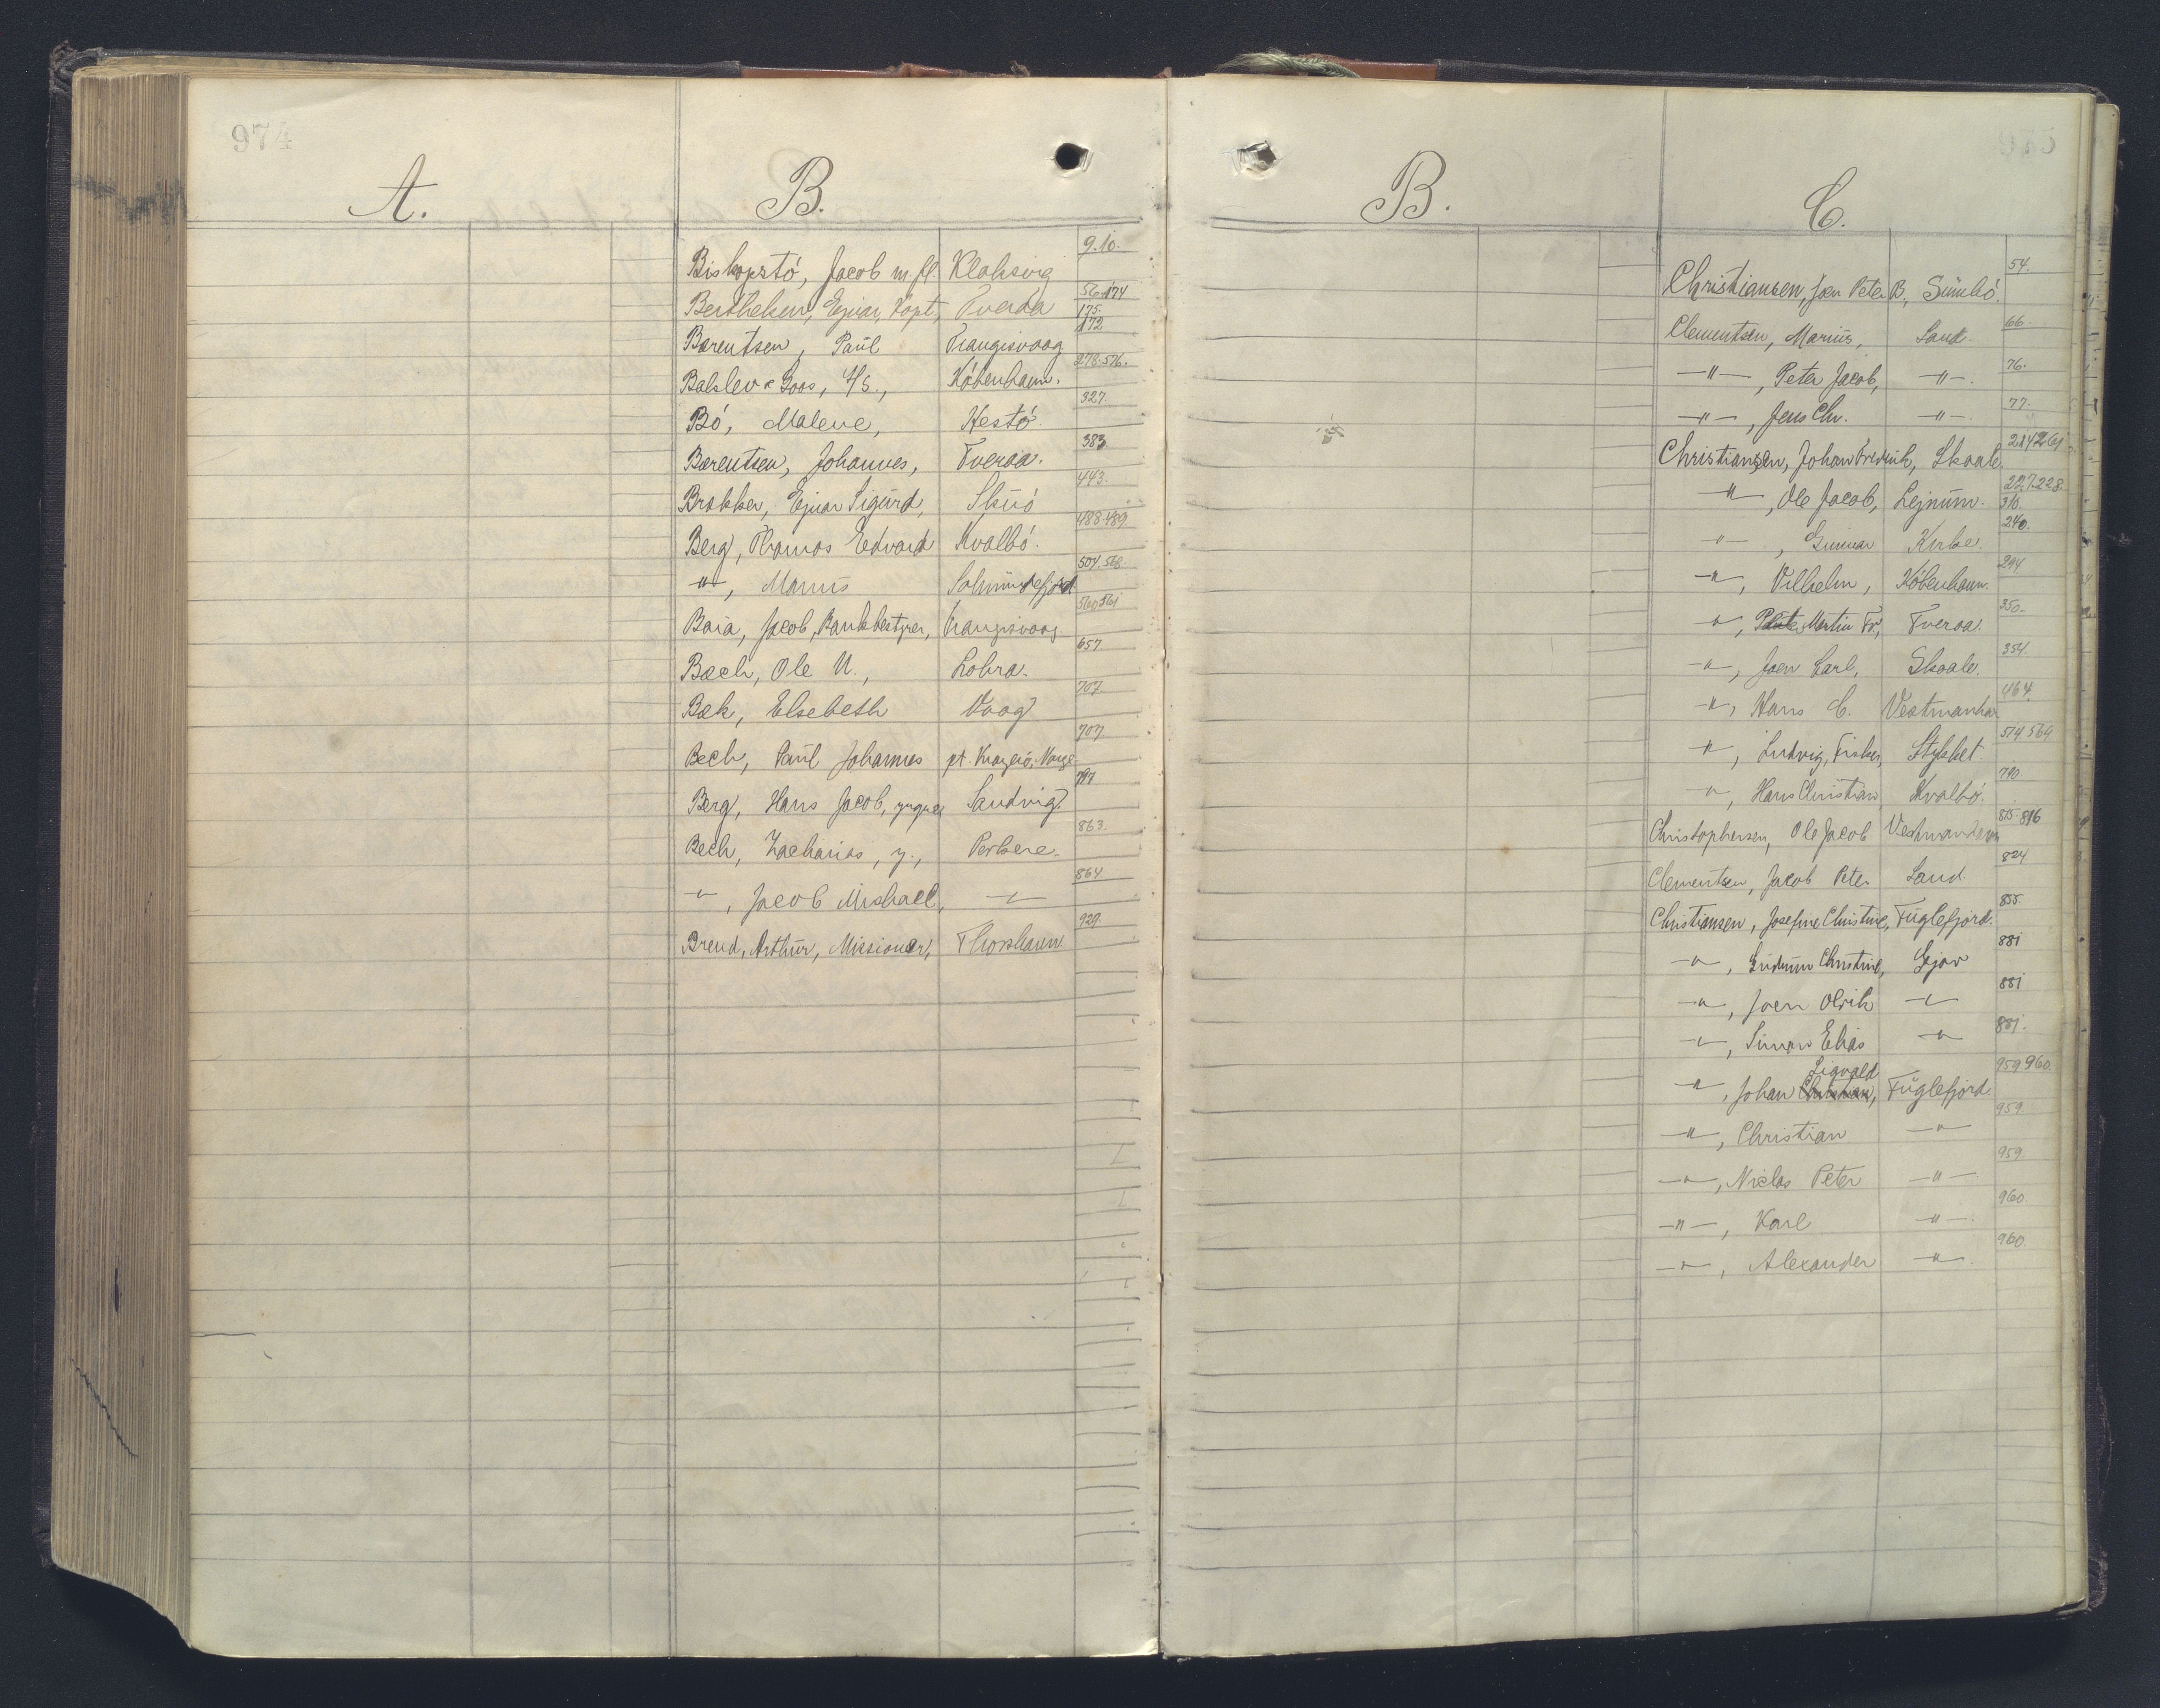 974
A.
B.
Biskopstó, Jacob m. fl. Klaksvig 9.10.
Berthelsen, Ejnar, Kapt., Tveraa 56.174 175.
Barentsen, Paul Trangisvaag 172
Balslev & Goos, A/S., København. 278.576.
Bó, Malene, Hestó. 327.
Barentsen, Johannes, Tveraa. 383.
Brekker, Ejnar Sigurd, Skuó 443.
Berg, Thomas Edvard Kvalbó. 488.489.
-"-, Marius Salmundefjord 504.568.
Baia, Jacob, Bankbestyrer, Trangisvaag 560.561
Bæch, Ole N., Lobra. 657
Bæk, Elsebeth Vaag 707.
Bech, Paul Johannes pt. Kragerö, Norge 707
Berg, Hans Jacob, yngre Sandvig 797
Bech, Zacharias, y., Porkere. 863.
-"-, Jacob Michael, -"- 864.
Brend, Arthur, Missionær, Thorshavn 929.
B.
C.
Christiansen, Joen Peter B., Sumbó. 54.
Clementsen, Marius, Sand. 66.
-"-, Peter Jacob, -"-. 76.
-"-, Jens Chr. -"-. 77.
Christiansen, Johan Fredrik, Skaale 214 261
-"-, Ole Jacob, Lejnum. 227.228. 316.
-"-, Gunnar Kirke. 240.
-"-, Vilhelm, København. 294
-"-, Martin Fr., Tveraa. 350.
-"-, Joen Carl, Skaale. 354.
-"-, Hans C. Vestmanhav 464.
-"-, Ludvig, Fisker, Stykket. 514 569
-"-, Hans Christian Kvalbó. 790.
Christophersen, Ole Jacob Vestmanhavn 815.816
Clementsen, Jacob Peter Sand 824
Christiansen, Josefine Christine, Fuglefjord. 855.
-"-, Gudrun Christine, Gjov 881
-"-, Joen Olrik -"- 881
-"-, Simon Elias -"- 881.
-"-, Johan Christian, Sigvald Fuglefjord. 959 960.
-"-, Christian -"- 959.
-"-, Niclas Peter -"-. 959.
-"-, Karl -"-. 960.
-"-, Alexander -"-. 960.